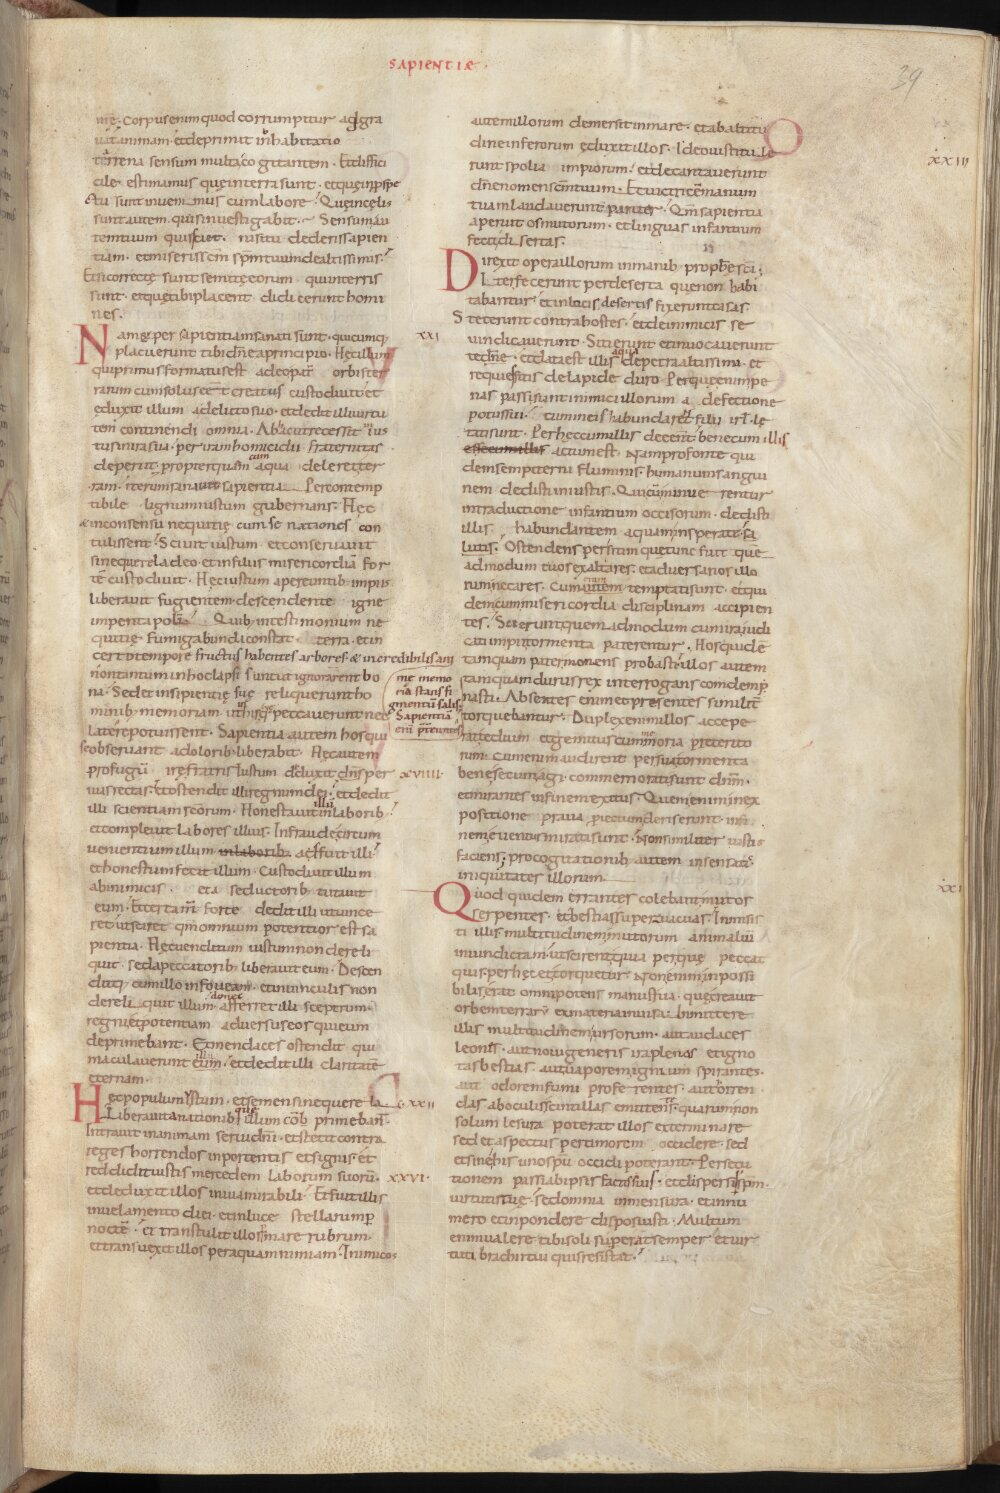 SAPIENTIAE
39
mę. Corpus enim quod corrumpitur aggra
uat animam. et deprimit inhabitatio
terrena sensum multa cogitantem. Et diffici
cile estimamus quę in terra sunt. et quę in pspe
ctu sunt inuenimus cum labore. Quę in cęlis
sunt autem. quis inuestigabit. Sensum au
tem tuum quis sciet. nisi tu dederis sapien
tiam. et miseris scm spm tuum de altissimis.
Et si correctę sunt semitę eorum qui in terris
sunt. et quę tibi placent didicerunt homi
nes.
Nam &per sapientiam sanati sunt. quicumq;
placuerunt tibi dñe a principio. Hęc illum
qui primus formatus est a deo pat orbis ter
rarum cum solus eēt creatus custodiuit et
eduxit illum a delicto suo. et dedit illi uirtu
tem continendi omnia. Ab hac ut recessit inius
tus in ira sua. per iram homicidii fraternitas
deperiit. propter quam cum aqua deleret ter
ram. iterum sanauit sapientia. Per contemp
tibile lignum iustum gubernans. Hęc
& in consensu nequitię cum se nationes con
tulissent. Sciuit iustum et conseruauit
sine querela deo. et in filiis misericordiā for
tē custodiuit. Hęc iustum a pereuntib impiis
liberauit fugientem. descendente igne
in pentapolī. Quib in testimonium ne
quitię fumigabunda constat terra. et in
certo tempore fructus habentes arbores. & incredibilis ani
non tantum in hoc lapsi sunt ut ignorarent bo
na. Sed et insipientię suę reliquerunt ho
minib memoriam ut in his quę peccauerunt nec
latere potuissent. Sapientia autem hos qui
se obseruant a dolorib liberabit. Hęc autem
profugū irę fratris iustum deduxit dñs per
uias rectas. et ostendit illi regnum dei. et dedit
illi scientiam scōrum. Honestauit illū in laborib.
et compleuit labores illius. In fraude circum
uenientium illum in laborib. adfuit illi.
et honestum fecit illum. Custodiuit illum
ab inimicis. et a seductorib tutauit
eum. Et certamē forte dedit illi ut uince
ret ut sciret qm omnium potentior est sa
pientia. Hęc uenditum iustum non dereli
quit. sed a peccatorib liberauit eum. Descen
ditq; cum illo in foueam. et in uinculis non
dereliquit illum. donec afferret illi sceptrum
regni et potentiam aduersus eos qui eum
deprimebant. Et mendaces ostendit qui
maculauerunt eum. et dedit illi claritatē
eternam.
Hęc populum iustum. et semen sine quere la
Liberauit a nationib que illum cōb primeban̄.
Intrauit in animam serui dñi. et stetit contra
reges horrendos in portentis et signis. et
reddidit iustis mercedem laborum suorū.
et deduxit illos in uia mirabili. Et fuit illis
in uelamento diei. et in luce stellarum p
noctē. et transtulit illos in mare rubrum.
et transuexit illos per aquam nimiam. Inimicos
me memo
ria stans fi
gmentū salis.
Sapientiā
eni p̄tereuntes
XXI
XVIIII
XXII
XXVI
autem illorum demersit in mare. et ab altitu
dine inferorum eduxit illos. Ideo iusti tule
runt spolia impiorum. et decantauerunt
dñe nomen scm tuum. Et uictricem manum
tuam laudauerunt pariter. Qm̄ sapientia
aperuit os mutorum. et linguas infantium
fecit disertas.
Direxit opera illorum in manib prophę sci.
Iter fecerunt per deserta quę non habi
tabantur. et in locis desertis fixerunt casas.
Steterunt contra hostes. et de inimicis se
uindicauerunt. Sitierunt et inuocauerunt
te dñe. et data est illis aqua de petra altissima. et
requies sitis de lapide duro. Per quę enim pe
nas passi sunt inimici illorum a defectione
potus sui. cum in eis habundaret filii isrl. lę
tati sunt. Per hęc cum illis deeent bene cum illis
esse cum illis actum est. Nam pro fonte qui
dem sempiterni fluminis. humanum sangui
nem dedisti iniustis. Qui cum minue rentur
in traductione infantium occisorum. dedisti
illis. habundantem aquam insperate sa
lutis. Ostendens per sitim quę tunc fuit que
admodum tuos exaltares. et aduersarios illo
rum necares. Cum enim temptati sunt. et qui
dem cum misericordia disciplinam accipien
tes. Scierunt quemadmodum cum ira iudi
cati impii tormenta paterentur. Hos quidē
tamquam pater monens probasti. illos autem
tamquam durus rex interrogans condemp
nasti. Absentes enim et presentes similit
torquebantur. Duplex enim illos accepe
rat tedium et gemitus cum memoria preterito
rum. Cum enim audirent per sua tormenta
bene secum agi. commemorati sunt dñm.
et mirantes in fine exitus. Quem enim in ex
positione praua proiectum deriserunt. in fi
nem euentus mirati sunt. Non similiter iustis
faciens. pro cogitationib autem insensatis
iniquitates illorum.
Quod quidem errantes colebant mutos
serpentes. et bestias superuacuas. Inmisis
ti illis multitudinem mutorum animaliū
in uindictam. ut scirent quia per quę peccat
quis. per hęc et torquetur. Non enim inpossi
bilis erat omnipotens manus tua. quę creauit
orbem terrarū ex materia inuisa. inmittere
illis multitudinem ursorum. aut audaces
leones. aut noui generis ira plenas et igno
tas bestias. aut uaporem ignium spirantes.
aut odorem fumi proferentes. aut orren
das ab oculis scintillas emittentes. quarum non
solum lesura poterat illos exterminare
sed et aspectus per timorem occidere. sed
et sine his uno spū occidi poterant. Persecu
tionem passi ab ipsis factis suis. et dispersi p spm.
uirtutis tuę. Sed omnia in mensura. et in nu
mero et in pondere disposuisti. Multum
enim ualere tibi soli superat semper et uir
tuti brachii tui quis resistat.
XXIII
XXI